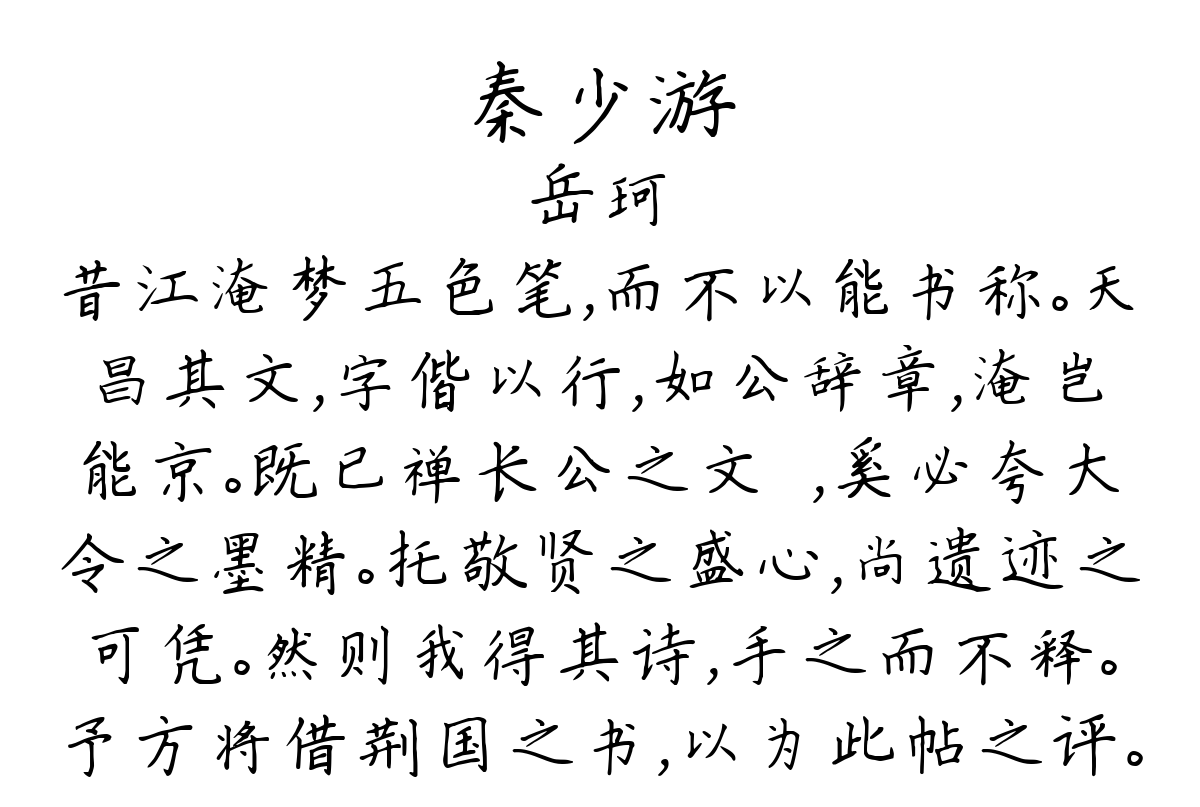 秦少游
岳珂
昔江淹梦五色笔,而不以能书称。天
昌其文,字偕以行,如公辞章,淹岂
能京。既已禅长公之文 ,奚必夸大
令之墨精。托敬贤之盛心,尚遗迹之
可凭。然则我得其诗,手之而不释。
予方将借荆国之书,以为此帖之评。